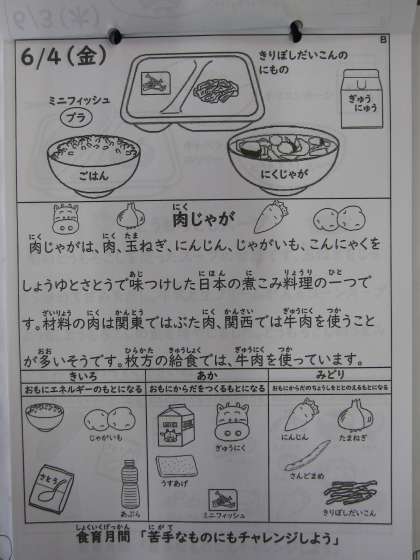 6/4(金)
B
きりぼしだいこんの
にもの
ミニフィッシュ
プラ
ぎゅう
にゅう
ごはん
にくじゃが
肉じゃが
肉じゃがは、肉、玉ねぎ、にんじん、じゃがいも、こんにゃくを
しょうゆとさとうで味つけした日本の煮こみ料理の一つで
す。材料の肉は関東ではぶた肉、関西では牛肉を使うこと
が多いそうです。枚方の給食では、牛肉を使っています。
きいろ
おもにエネルギーのもとになる
じゃがいも
さとう
あぶら
あか
おもにからだをつくるもとになる
ぎゅうにく
うすあげ
ミニフィッシュ
みどり
おもにからだのちょうしをととのえるもとになる
にんじん
たまねぎ
さんどまめ
きりぼしだいこん
食育月間 「苦手なものにもチャレンジしよう」